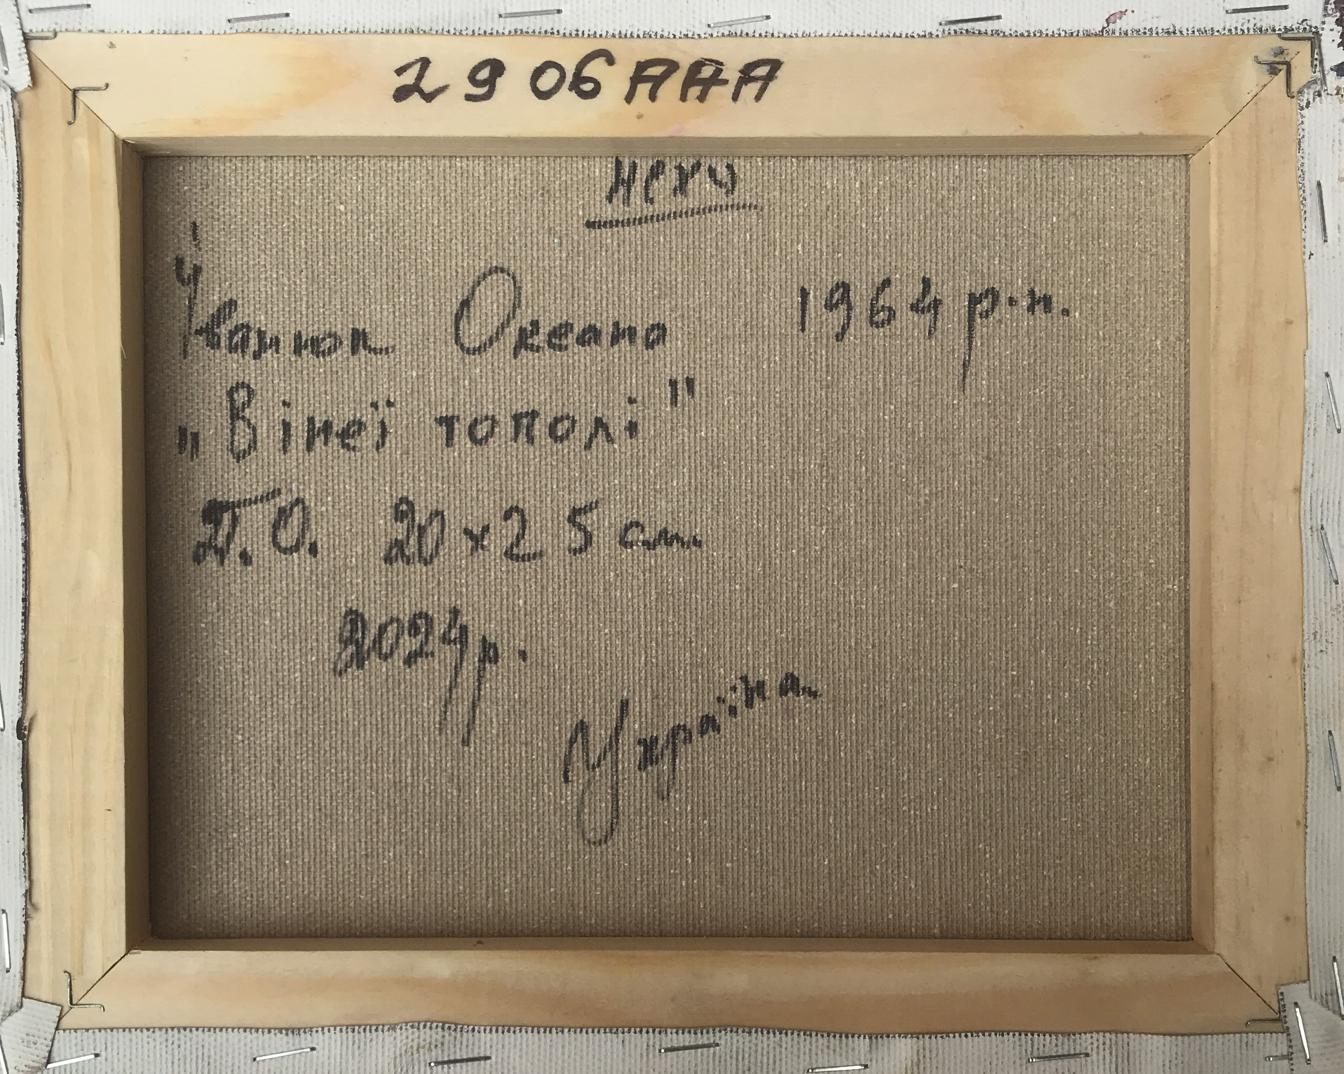 2906ААА
Іванюк Оксана 1964 р.н.
„В інеї тополі"
П.О. 20х25 см.
2024р.
Україна